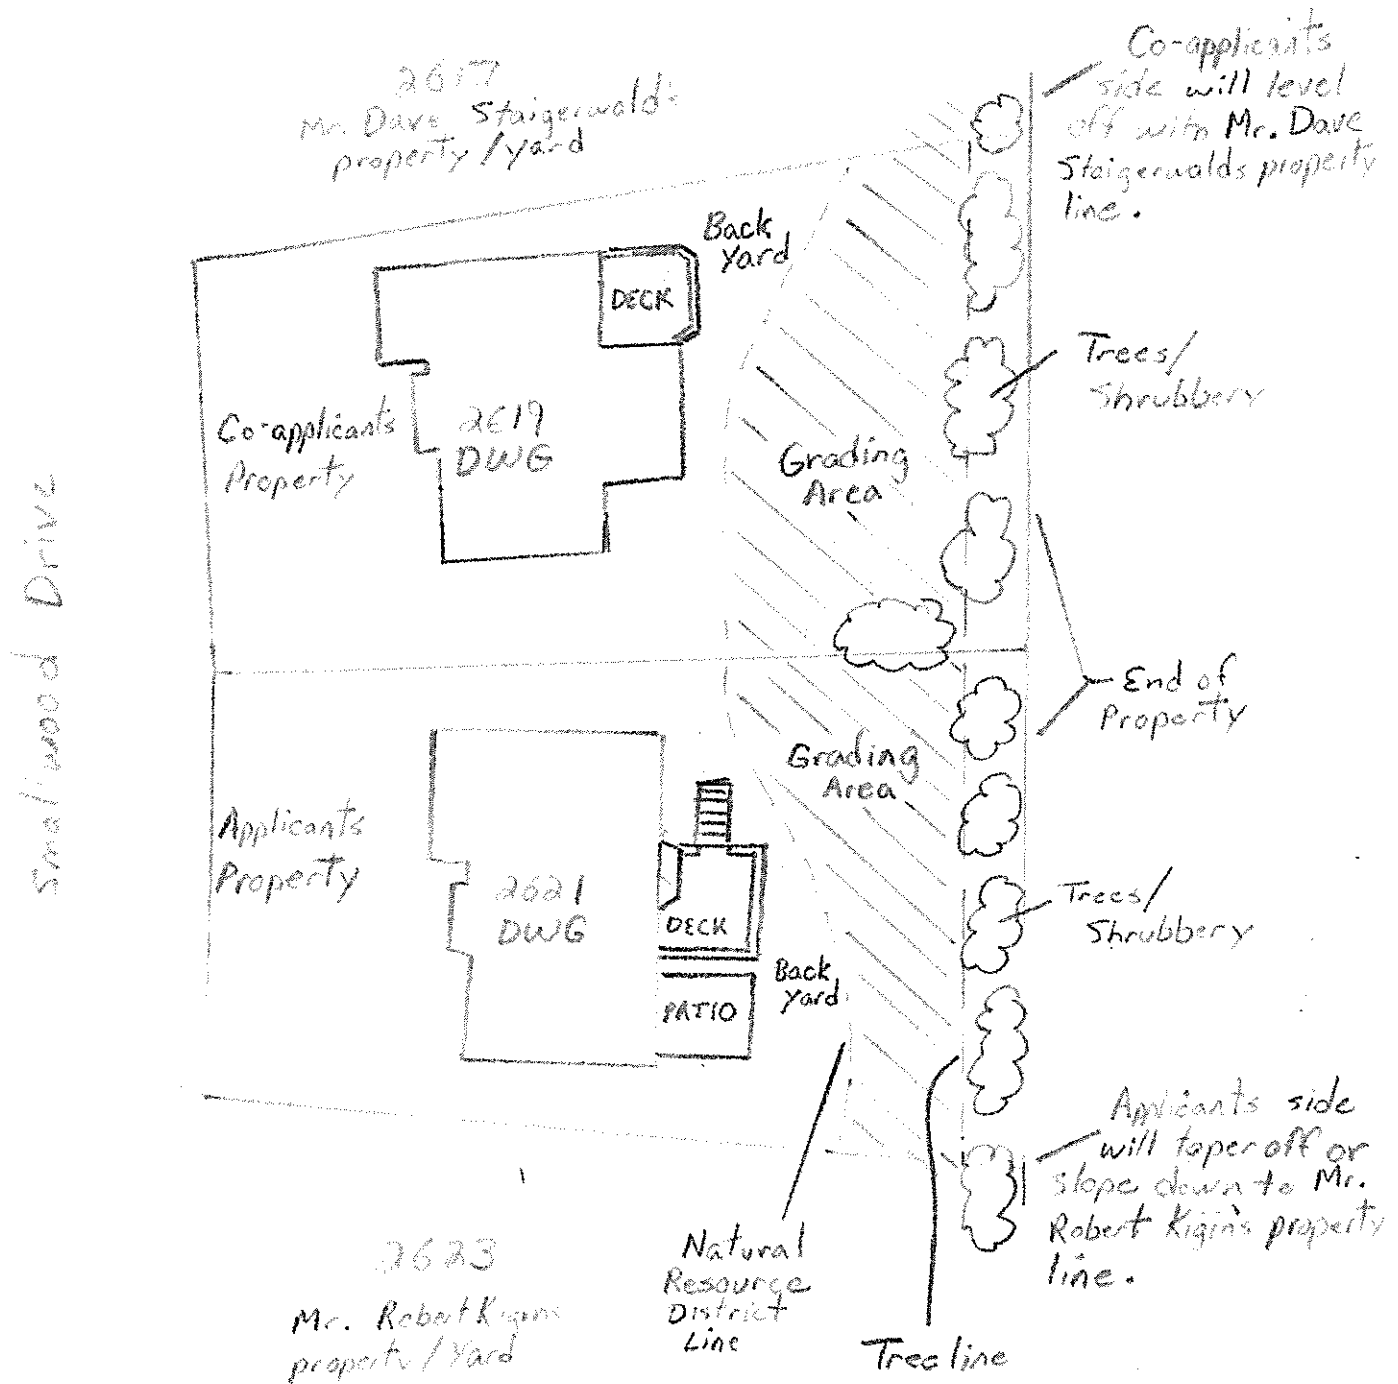 2617
Mr. Dave Staigerwald's
property/yard
Co-applicants
side will level
off with Mr. Dave
Staigerwalds property
line.
Back
Yard
DECK
Trees/
Shrubbery
Co-applicants
Property
2619
DWG
Grading
Area
Smallwood Drive
End of
Property
Grading
Area
Applicants
Property
2621
DWG
DECK
Trees/
Shrubbery
Back
Yard
PATIO
Applicants side
will taper off or
slope down to Mr.
Robert Kigin's property
line.
2623
Mr. Robert Kigins
property/Yard
Natural
Resource
District
Line
Tree line